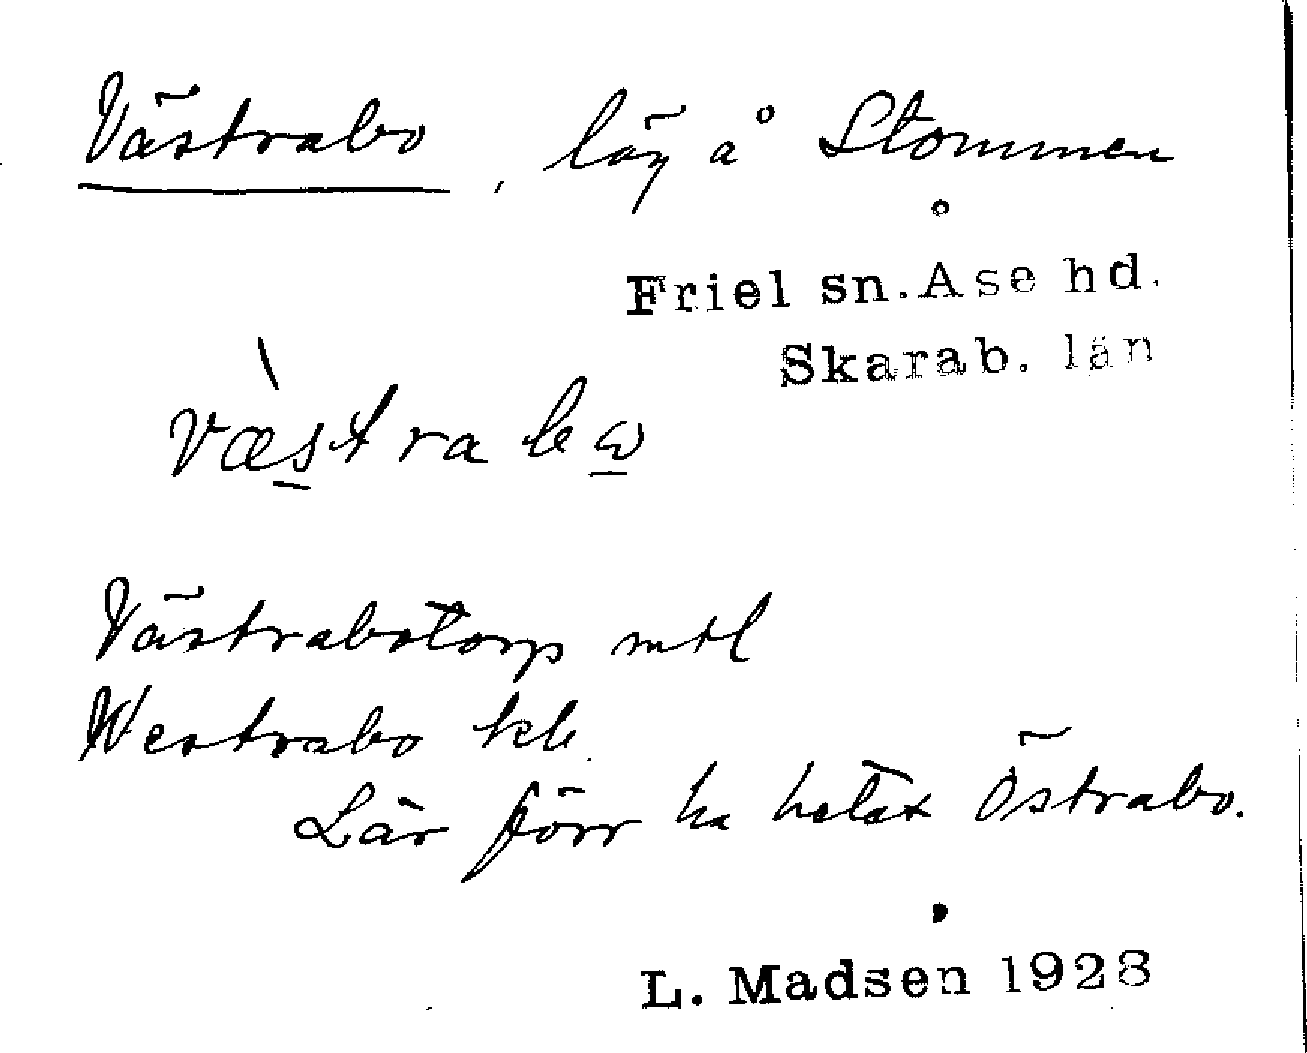 Västrabo, läg å Stommen
Friel sn. Åse hd.
Skarab. län
væstra bω
Västrabotorp mtl
Westrabo kb.
Lär förr ha hetat Östrabo.
L. Madsen 1928